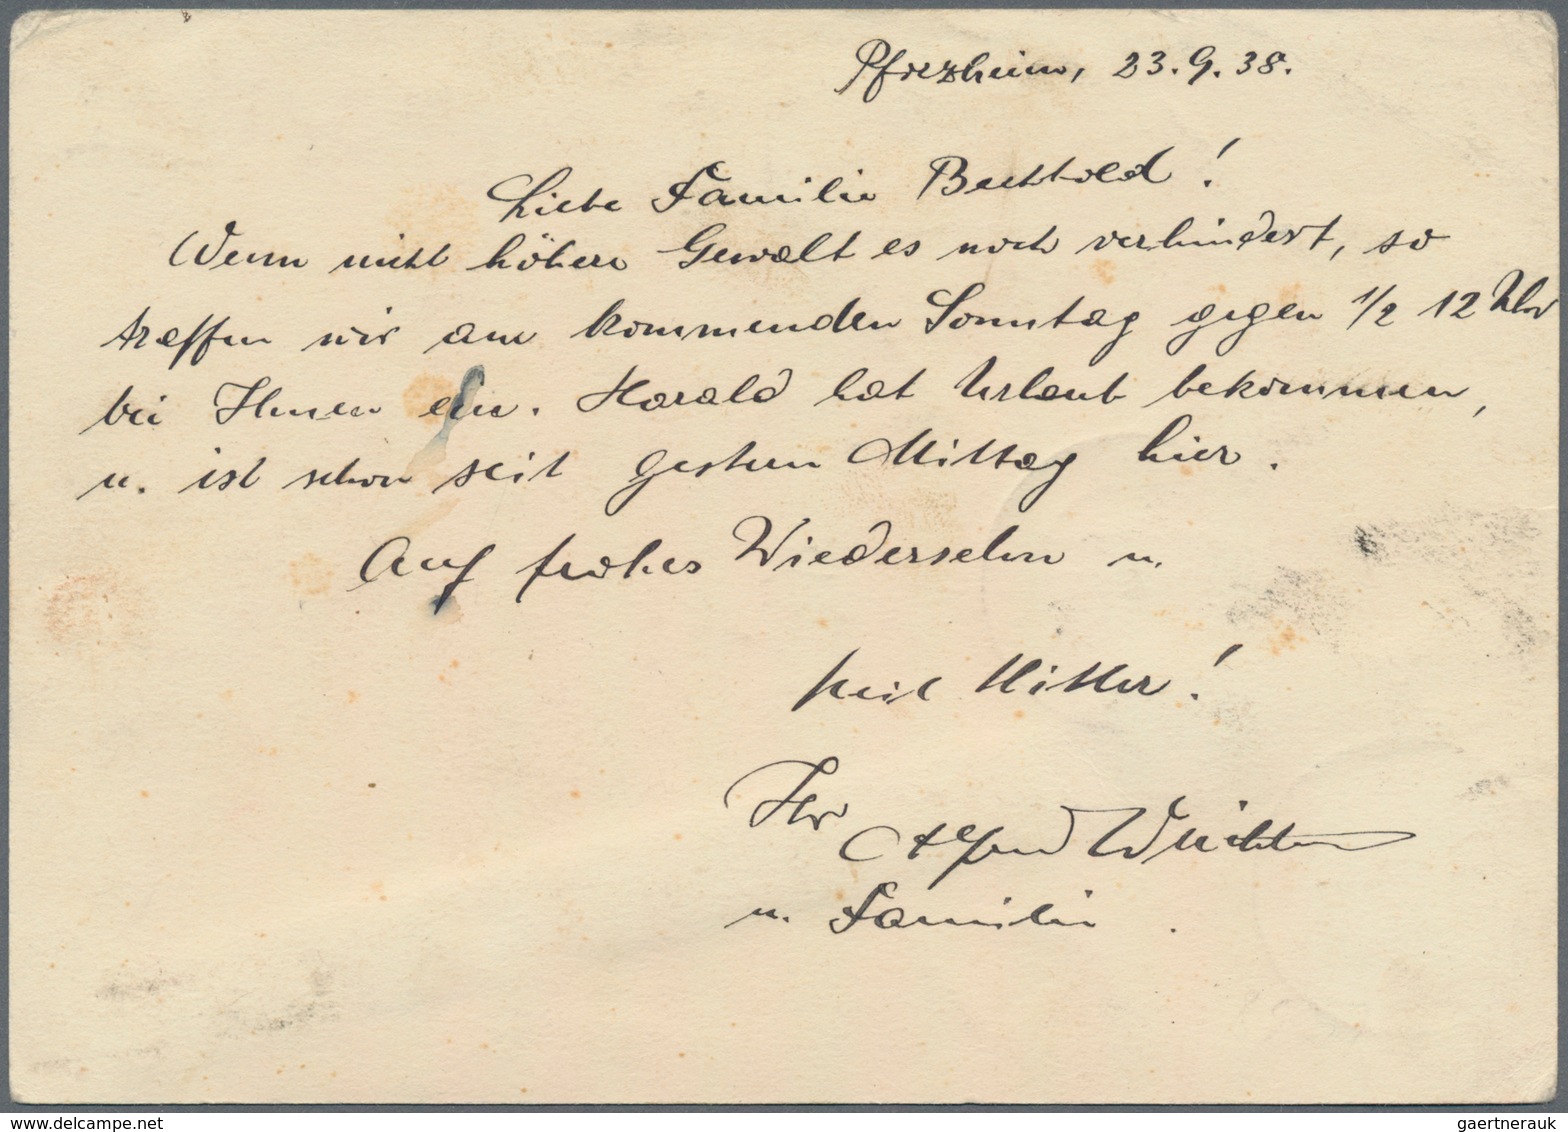 Pforzheim, 23.9.38.
Liebe Familie Bechtold!
Wenn nicht höhere Gewalt es noch verhindert, so
treffen wir am kommenden Sonntag gegen 1/2 12 Uhr
bei Ihnen ein. Harald hat Urlaub bekommen,
u. ist schon seit gestern Mittag hier.
Auf frohes Wiedersehn u.
Heil Hitler!
Ihr
Alfred
u. Familie.
gaertnerauk / delcampe.net